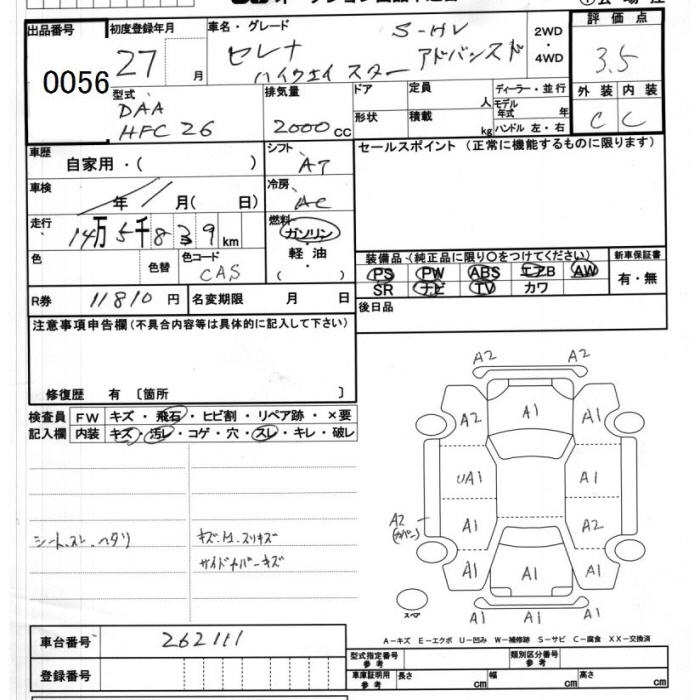 出品番号 初度登録年月 車名・グレード 2WD・4WD 評価点
0056 27 月 セレナ S-HV 3.5
ハイウェイスター アドバンスド
型式 排気量 ドア 定員 人 ディーラー・並行 外装 内装
DAA モデル年式 年
HFC26 2000cc 形状 積載 kg ハンドル 左・右 C C
車歴 自家用・( ) シフト AT セールスポイント (正常に機能するものに限ります)
車検 年 月( 日) 冷房 AC
走行 14万5千839km 燃料 ガソリン
軽油
( )
色 色替 色コード CAS
装備品 (純正品に限り○をつけてください) 新車保証書
PS PW ABS エアB AW 有・無
SR ナビ TV カワ
R券 11810円 名変期限 月 日 後日品
注意事項申告欄(不具合内容等は具体的に記入して下さい)
修復歴 有 〔箇所 〕
検査員 FW キズ・飛石・ヒビ割・リペア跡・×要
記入欄 内装 キズ・汚レ・コゲ・穴・スレ・キレ・破レ
シートスレ ヘタリ
スリキズ
サイドカバーキズ
A2 A2
A2 A1 A1
UA1 A1
A2 (カバー) A1 A2
A1 A1 A1
A1 A1 A1
スペア
A-キズ E-エクボ U-凹み W-補修跡 S-サビ C-腐食 XX-交換済
車台番号 262111
登録番号
型式指定番号 参考 類別区分番号 参考
車庫証明用 参考 長さ cm 幅 cm 高さ cm